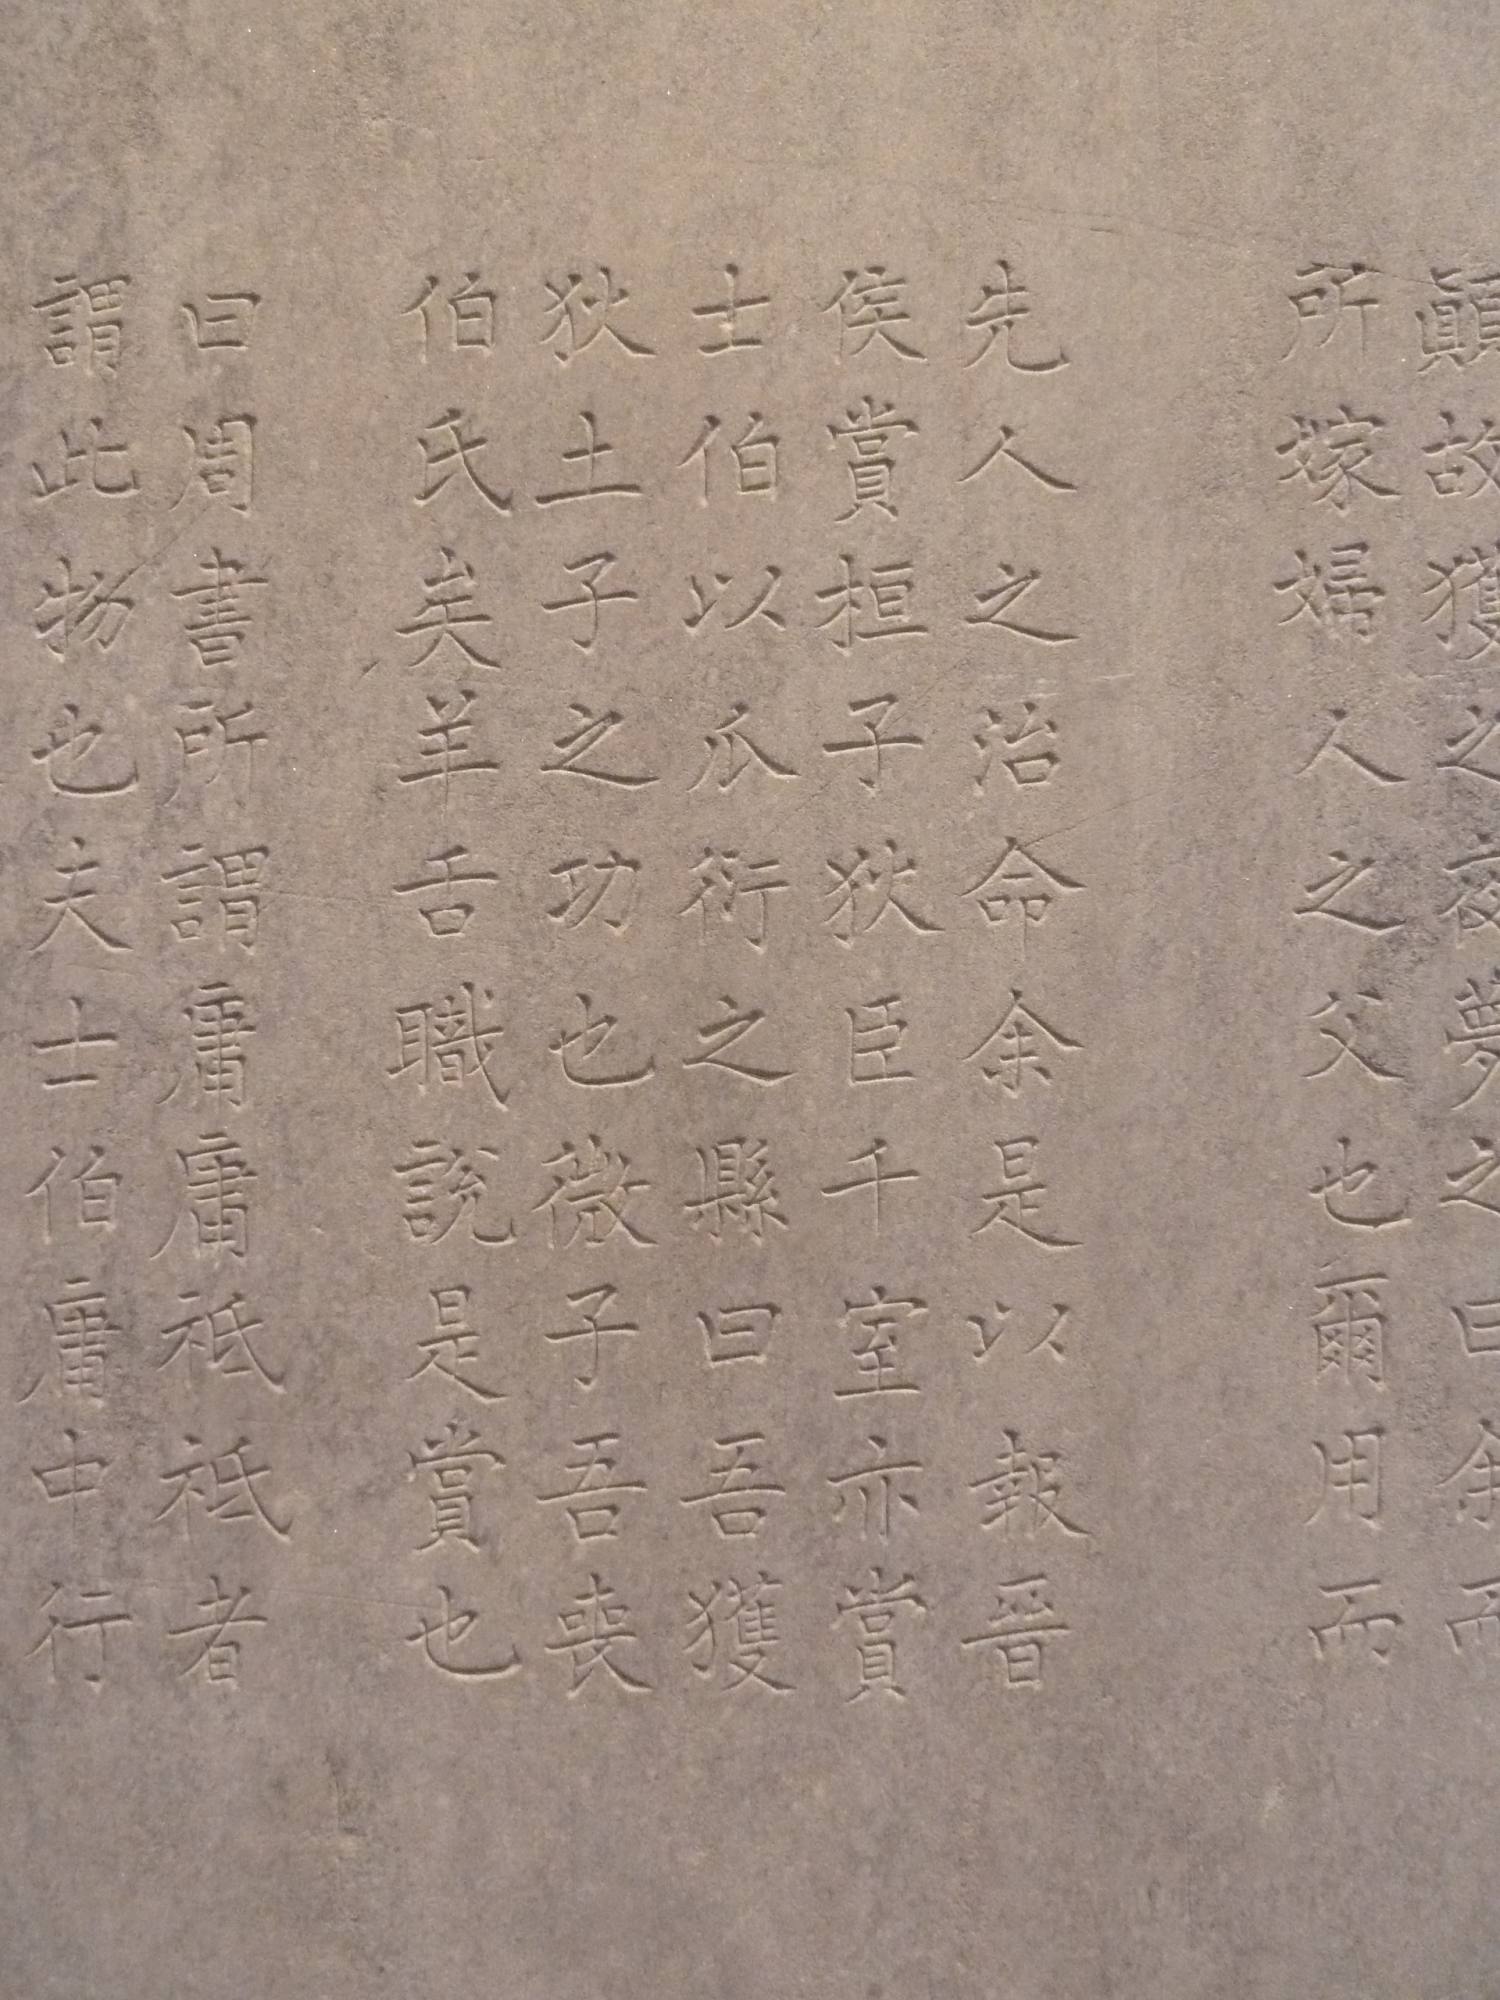 顛故獲之夜夢之曰余而
所嫁婦人之父也爾用而
先人之治命余是以報晉
侯賞桓子狄臣千室亦賞
士伯以瓜衍之縣曰吾獲
狄土子之功也微子吾喪
伯氏矣羊舌職說是賞也
曰周書所謂庸庸祗祗者
謂此物也夫士伯庸中行